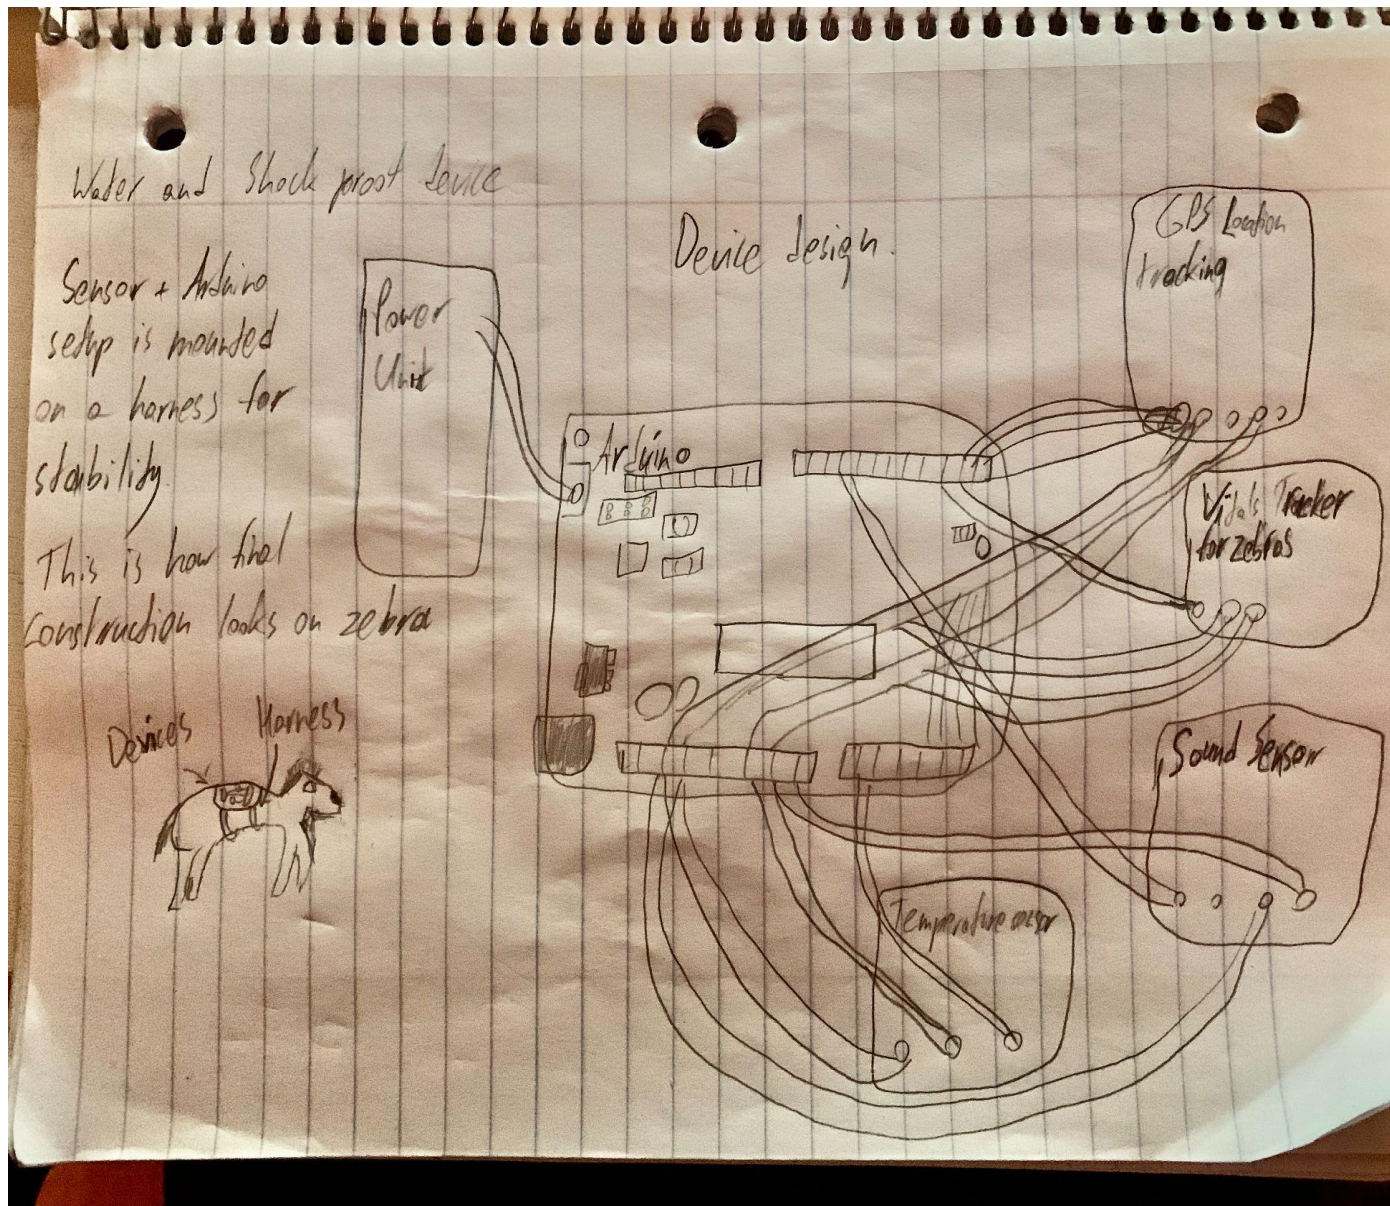 Water and Shock proof device
Device design.
Sensor + Arduino
setup is mounted
on a harness for
stability.
This is how final
construction looks on zebra
Devices
Harness
Power
Unit
Arduino
GPS Location
tracking
Vitals Tracker
for zebras
Sound Sensor
Temperature sensor